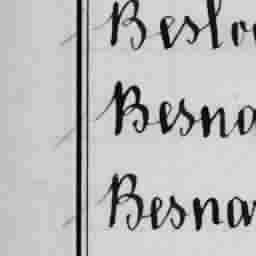 Beslo
Besna
Besnar